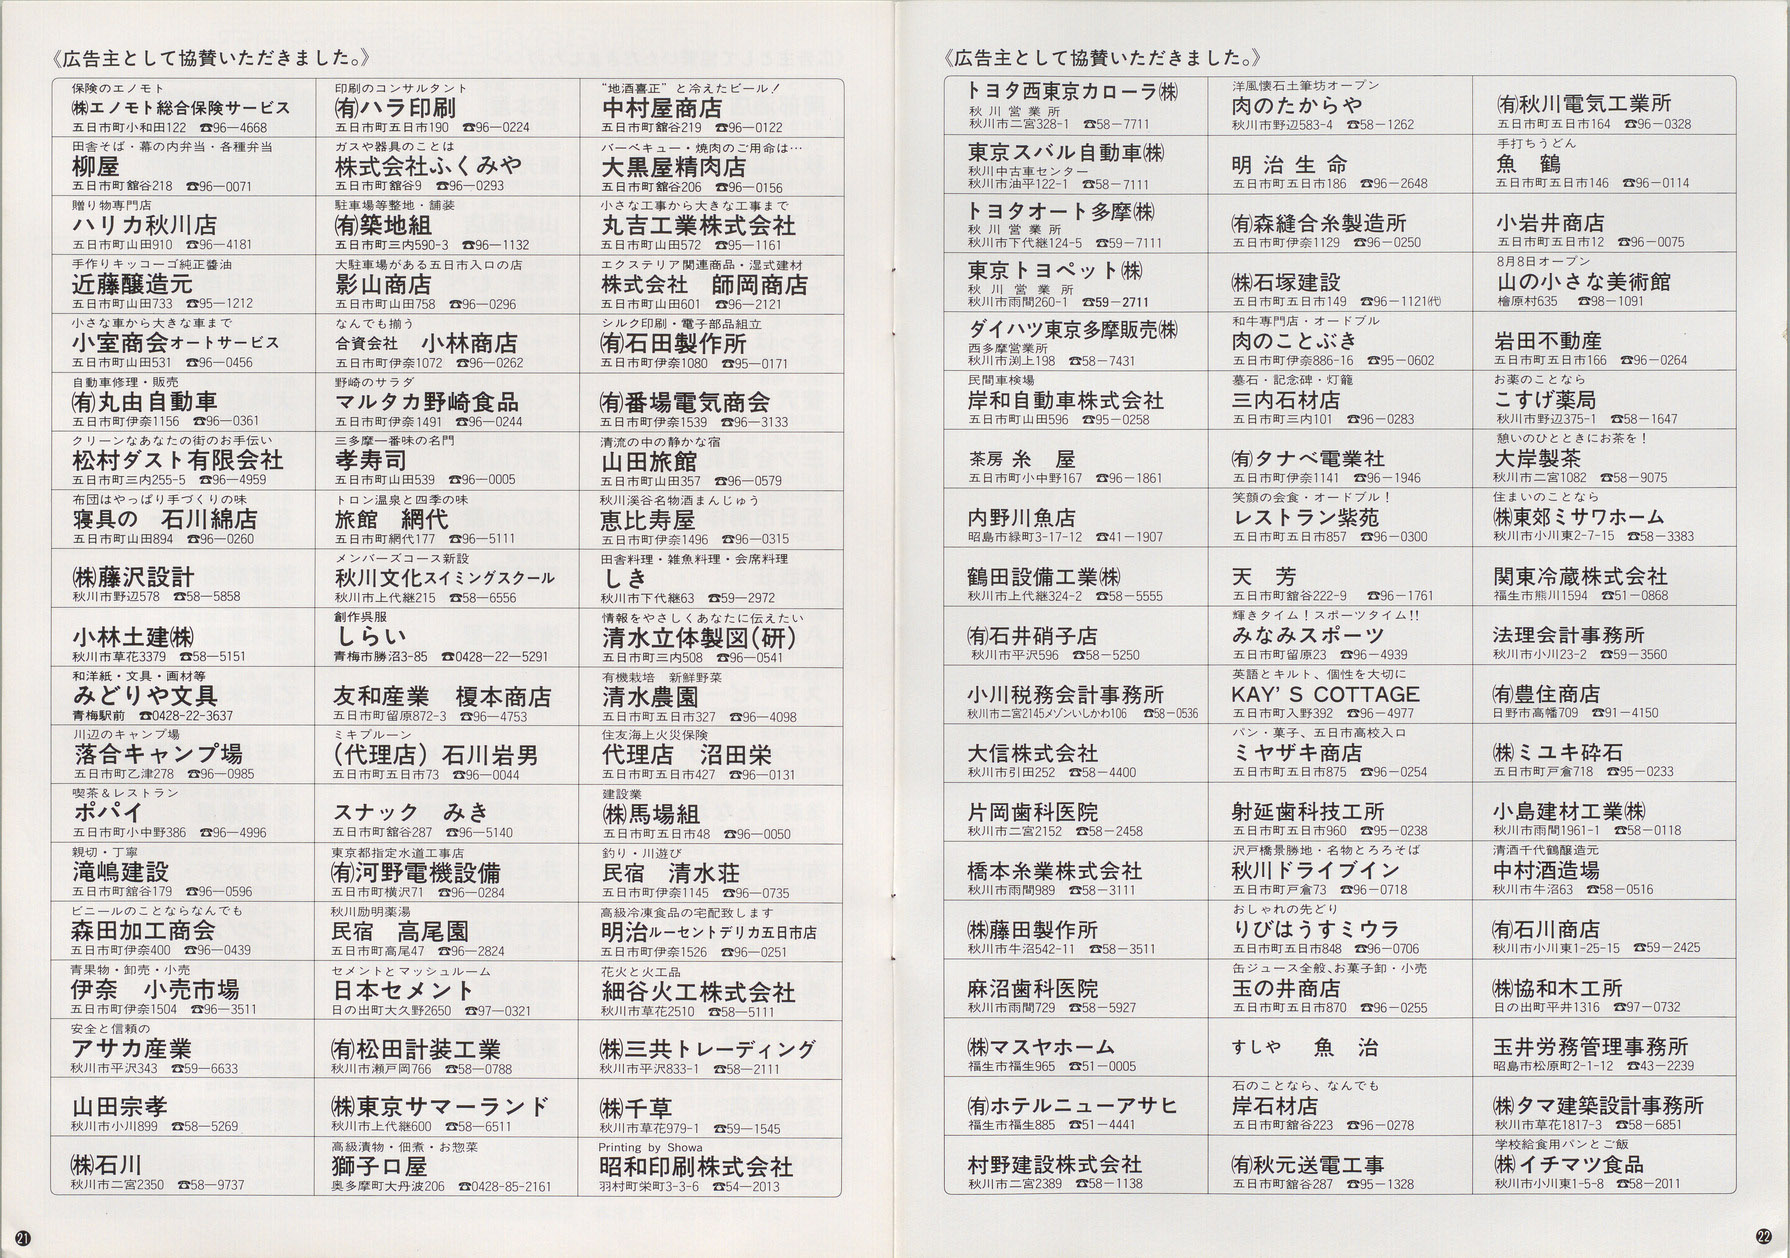 《広告主として協賛いただきました。》
保険のエノモト
㈱エノモト総合保険サービス
五日市町小和田122 ☎96—4668
印刷のコンサルタント
㈲ハラ印刷
五日市町五日市190 ☎96—0224
“地酒喜正”と冷えたビール！
中村屋商店
五日市町舘谷219 ☎96—0122
田舎そば・幕の内弁当・各種弁当
柳屋
五日市町舘谷218 ☎96—0071
ガスや器具のことは
株式会社ふくみや
五日市町舘谷9 ☎96—0293
バーベキュー・焼肉のご用命は…
大黒屋精肉店
五日市町舘谷206 ☎96—0156
贈り物専門店
ハリカ秋川店
五日市町山田910 ☎96—4181
駐車場等整地・舗装
㈲築地組
五日市町三内590-3 ☎96—1132
小さな工事から大きな工事まで
丸吉工業株式会社
五日市町山田572 ☎95—1161
手作りキッコーゴ純正醬油
近藤醸造元
五日市町山田733 ☎95—1212
大駐車場がある五日市入口の店
影山商店
五日市町山田758 ☎96—0296
エクステリア関連商品・湿式建材
株式会社 師岡商店
五日市町山田601 ☎96—2121
小さな車から大きな車まで
小室商会オートサービス
五日市町山田531 ☎96—0456
なんでも揃う
合資会社 小林商店
五日市町伊奈1072 ☎96—0262
シルク印刷・電子部品組立
㈲石田製作所
五日市町伊奈1080 ☎95—0171
自動車修理・販売
㈲丸由自動車
五日市町伊奈1156 ☎96—0361
野崎のサラダ
マルタカ野崎食品
五日市町伊奈1491 ☎96—0244
㈲番場電気商会
五日市町伊奈1539 ☎96—3133
クリーンなあなたの街のお手伝い
松村ダスト有限会社
五日市町三内255-5 ☎96—4959
三多摩一番味の名門
孝寿司
五日市町山田539 ☎96—0005
清流の中の静かな宿
山田旅館
五日市町山田357 ☎96—0579
布団はやっぱり手づくりの味
寝具の 石川綿店
五日市町山田894 ☎96—0260
トロン温泉と四季の味
旅館 網代
五日市町網代177 ☎96—5111
秋川渓谷名物酒まんじゅう
恵比寿屋
五日市町伊奈1496 ☎96—0315
㈱藤沢設計
秋川市野辺578 ☎58—5858
メンバーズコース新設
秋川文化スイミングスクール
秋川市上代継215 ☎58—6556
田舎料理・雑魚料理・会席料理
しき
秋川市下代継63 ☎59—2972
小林土建㈱
秋川市草花3379 ☎58—5151
創作呉服
しらい
青梅市勝沼3-85 ☎0428—22—5291
情報をやさしくあなたに伝えたい
清水立体製図(研)
五日市町三内508 ☎96—0541
和洋紙・文具・画材等
みどりや文具
青梅駅前 ☎0428-22-3637
友和産業 榎本商店
五日市町留原872-3 ☎96—4753
有機栽培 新鮮野菜
清水農園
五日市町五日市327 ☎96—4098
川辺のキャンプ場
落合キャンプ場
五日市町乙津278 ☎96—0985
ミキプルーン
(代理店)石川岩男
五日市町五日市73 ☎96—0044
住友海上火災保険
代理店 沼田栄
五日市町五日市427 ☎96—0131
喫茶＆レストラン
ポパイ
五日市町小中野386 ☎96—4996
スナック みき
五日市町舘谷287 ☎96—5140
建設業
㈱馬場組
五日市町五日市48 ☎96—0050
親切・丁寧
滝嶋建設
五日市町舘谷179 ☎96—0596
東京都指定水道工事店
㈲河野電機設備
五日市町横沢71 ☎96—0284
釣り・川遊び
民宿 清水荘
五日市町伊奈1145 ☎96—0735
ビニールのことならなんでも
森田加工商会
五日市町伊奈400 ☎96—0439
秋川励明薬湯
民宿 高尾園
五日市町高尾47 ☎96—2824
高級冷凍食品の宅配致します
明治ルーセントデリカ五日市店
五日市町伊奈1526 ☎96—0251
青果物・卸売・小売
伊奈 小売市場
五日市町伊奈1504 ☎96—3511
セメントとマッシュルーム
日本セメント
日の出町大久野2650 ☎97—0321
花火と火工品
細谷火工株式会社
秋川市草花2510 ☎58—5111
安全と信頼の
アサカ産業
秋川市平沢343 ☎59—6633
㈲松田計装工業
秋川市瀬戸岡766 ☎58—0788
㈱三共トレーディング
秋川市平沢833-1 ☎58—2111
山田宗孝
秋川市小川899 ☎58—5269
㈱東京サマーランド
秋川市上代継600 ☎58—6511
㈱千草
秋川市草花979-1 ☎59—1545
㈱石川
秋川市二宮2350 ☎58—9737
高級漬物・佃煮・お惣菜
獅子口屋
奥多摩町大丹波206 ☎0428-85-2161
Printing by Showa
昭和印刷株式会社
羽村町栄町3-3-6 ☎54—2013
21
《広告主として協賛いただきました。》
トヨタ西東京カローラ㈱
秋川営業所
秋川市二宮328-1 ☎58−7711
洋風懐石土筆坊オープン
肉のたからや
秋川市野辺583-4 ☎58−1262
㈲秋川電気工業所
五日市町五日市164 ☎96−0328
東京スバル自動車㈱
秋川中古車センター
秋川市油平122-1 ☎58−7111
明治生命
五日市町五日市186 ☎96−2648
手打ちうどん
魚鶴
五日市町五日市146 ☎96−0114
トヨタオート多摩㈱
秋川営業所
秋川市下代継124-5 ☎59−7111
㈲森縫合糸製造所
五日市町伊奈1129 ☎96−0250
小岩井商店
五日市町五日市12 ☎96−0075
東京トヨペット㈱
秋川営業所
秋川市雨間260-1 ☎59−2711
㈱石塚建設
五日市町五日市149 ☎96−1121㈹
8月8日オープン
山の小さな美術館
檜原村635 ☎98−1091
ダイハツ東京多摩販売㈱
西多摩営業所
秋川市渕上198 ☎58−7431
和牛専門店・オードブル
肉のことぶき
五日市町伊奈886-16 ☎95−0602
岩田不動産
五日市町五日市166 ☎96−0264
民間車検場
岸和自動車株式会社
五日市町山田596 ☎95−0258
墓石・記念碑・灯籠
三内石材店
五日市町三内101 ☎96−0283
お薬のことなら
こすげ薬局
秋川市野辺375-1 ☎58−1647
茶房 糸屋
五日市町小中野167 ☎96−1861
㈲タナベ電業社
五日市町伊奈1141 ☎96−1946
憩いのひとときにお茶を！
大岸製茶
秋川市二宮1082 ☎58−9075
内野川魚店
昭島市緑町3-17-12 ☎41−1907
笑顔の会食・オードブル！
レストラン紫苑
五日市町五日市857 ☎96−0300
住まいのことなら
㈱東郊ミサワホーム
秋川市小川東2-7-15 ☎58−3383
鶴田設備工業㈱
秋川市上代継324-2 ☎58−5555
天芳
五日市町舘谷222-9 ☎96−1761
関東冷蔵株式会社
福生市熊川1594 ☎51−0868
㈲石井硝子店
秋川市平沢596 ☎58−5250
輝きタイム！スポーツタイム!!
みなみスポーツ
五日市町留原23 ☎96−4939
法理会計事務所
秋川市小川23-2 ☎59−3560
小川税務会計事務所
秋川市二宮2145メゾンいしかわ106 ☎58−0536
英語とキルト、個性を大切に
KAY'S COTTAGE
五日市町入野392 ☎96−4977
㈲豊住商店
日野市高幡709 ☎91−4150
大信株式会社
秋川市引田252 ☎58−4400
パン・菓子、五日市高校入口
ミヤザキ商店
五日市町五日市875 ☎96−0254
㈱ミユキ砕石
五日市町戸倉718 ☎95−0233
片岡歯科医院
秋川市二宮2152 ☎58−2458
射延歯科技工所
五日市町五日市960 ☎95−0238
小島建材工業㈱
秋川市雨間1961-1 ☎58−0118
橋本糸業株式会社
秋川市雨間989 ☎58−3111
沢戸橋景勝地・名物とろろそば
秋川ドライブイン
五日市町戸倉73 ☎96−0718
清酒千代鶴醸造元
中村酒造場
秋川市牛沼63 ☎58−0516
㈱藤田製作所
秋川市牛沼542-11 ☎58−3511
おしゃれの先どり
りびはうすミウラ
五日市町五日市848 ☎96−0706
㈲石川商店
秋川市小川東1-25-15 ☎59−2425
麻沼歯科医院
秋川市雨間729 ☎58−5927
缶ジュース全般、お菓子卸・小売
玉の井商店
五日市町五日市870 ☎96−0255
㈱協和木工所
日の出町平井1316 ☎97−0732
㈱マスヤホーム
福生市福生965 ☎51−0005
すしや 魚治
玉井労務管理事務所
昭島市松原町2-1-12 ☎43−2239
㈲ホテルニューアサヒ
福生市福生885 ☎51−4441
石のことなら、なんでも
岸石材店
五日市町舘谷223 ☎96−0278
㈱タマ建築設計事務所
秋川市草花1817-3 ☎58−6851
村野建設株式会社
秋川市二宮2389 ☎58−1138
㈲秋元送電工事
五日市町舘谷287 ☎95−1328
学校給食用パンとご飯
㈱イチマツ食品
秋川市小川東1-5-8 ☎58−2011
22